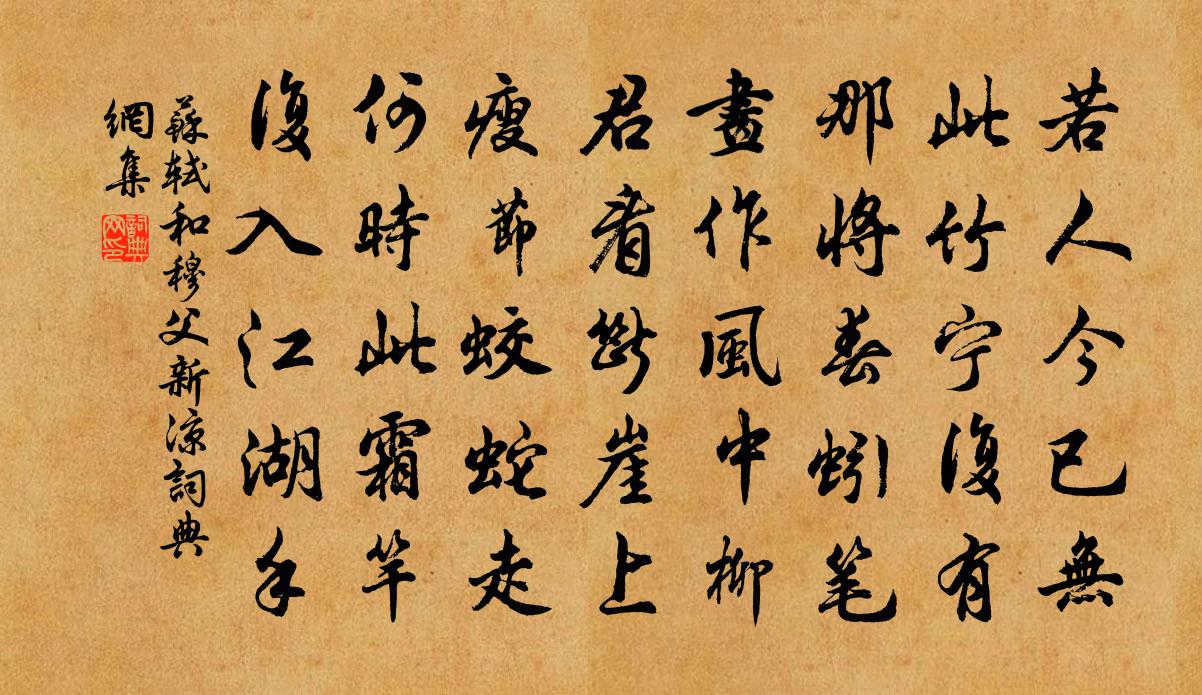 若人今已無
此竹宁復有
那將春蚓笔
畫作風中柳
君看斷崖上
瘦節蛟蛇走
何時此霜竿
復入江湖手
蘇軾和穆父新涼詞典
網集
詞典
网印